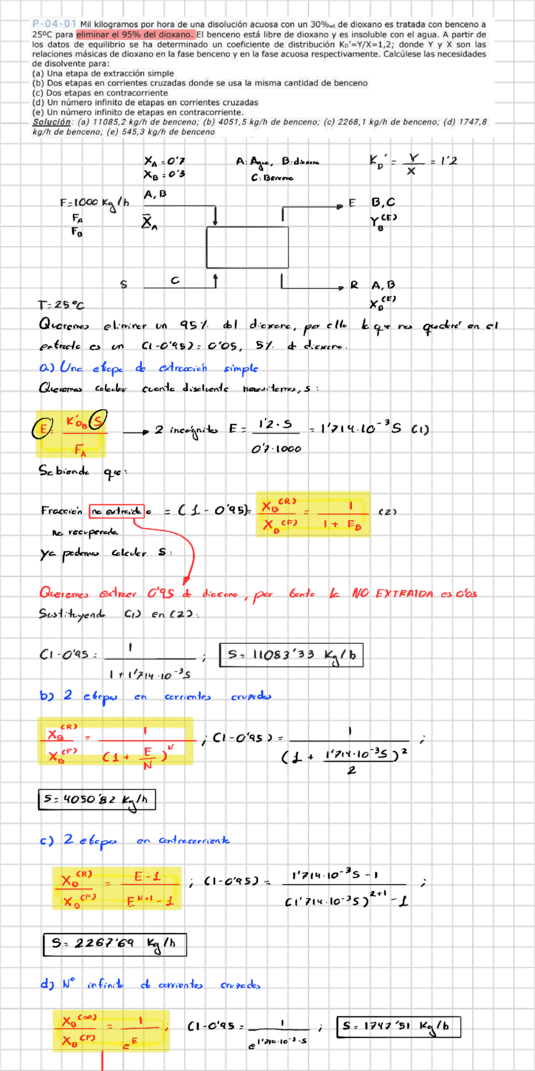 P-04-01 Mil kilogramos por hora de una disolución acuosa con un 30%wt de dioxano es tratada con benceno a
25ºC para eliminar el 95% del dioxano. El benceno está libre de dioxano y es insoluble con el agua. A partir de
los datos de equilibrio se ha determinado un coeficiente de distribución KD'=Y/X=1,2; donde Y y X son las
relaciones másicas de dioxano en la fase benceno y en la fase acuosa respectivamente. Calcúlese las necesidades
de disolvente para:
(a) Una etapa de extracción simple
(b) Dos etapas en corrientes cruzadas donde se usa la misma cantidad de benceno
(c) Dos etapas en contracorriente
(d) Un número infinito de etapas en corrientes cruzadas
(e) Un número infinito de etapas en contracorriente.
Solución: (a) 11085,2 kg/h de benceno; (b) 4051,5 kg/h de benceno; (c) 2268,1 kg/h de benceno; (d) 1747,8
kg/h de benceno; (e) 545,3 kg/h de benceno
XA = 0'7 A: Agua, B: dioxano KD' = Y/X = 1'2
XB = 0'3 C: Benceno
F = 1000 Kg/h A, B E B, C
FA XA YB(E)
FB
S C R A, B
T = 25ºC XD(E)
Queremos eliminar un 95% del dioxano, por ello lo que nos quedará en el
extracto es un (1-0'95) = 0'05, 5% de dioxano.
a) Una etapa de extracción simple
Queremos calcular cuanto disolvente necesitamos, S:
E = K'DD S / FA → 2 incógnitas E = 1'2·S / 0'7·1000 = 1'714·10^-3 S (1)
Sabiendo que:
Fracción no extraida o = (1 - 0'95) = XD(R) / XD(F) = 1 / 1 + ED (2)
no recuperada
ya podemos calcular S:
Queremos extraer 0'95 de dioxano, por tanto lo NO EXTRAIDA es 0'05
Sustituyendo (1) en (2):
(1-0'95 = 1 / 1 + 1'714·10^-3 S ; S = 11083'33 Kg/h
b) 2 etapas en corrientes cruzadas
XD(R) / XD(F) = 1 / (1 + E/N)^N ; (1-0'95) = 1 / (1 + 1'714·10^-3 S / 2)^2 ;
S = 4050'82 Kg/h
c) 2 etapas en contracorriente
XD(R) / XD(F) = E-1 / E^N+1 - 1 ; (1-0'95) = 1'714·10^-3 S - 1 / (1'714·10^-3 S)^2+1 - 1 ;
S = 2267'69 Kg/h
d) Nº infinito de corrientes cruzadas
XB(∞) / XB(F) = 1 / e^E ; (1-0'95 = 1 / e^1'714·10^-3·S ; S = 1747'51 Kg/h